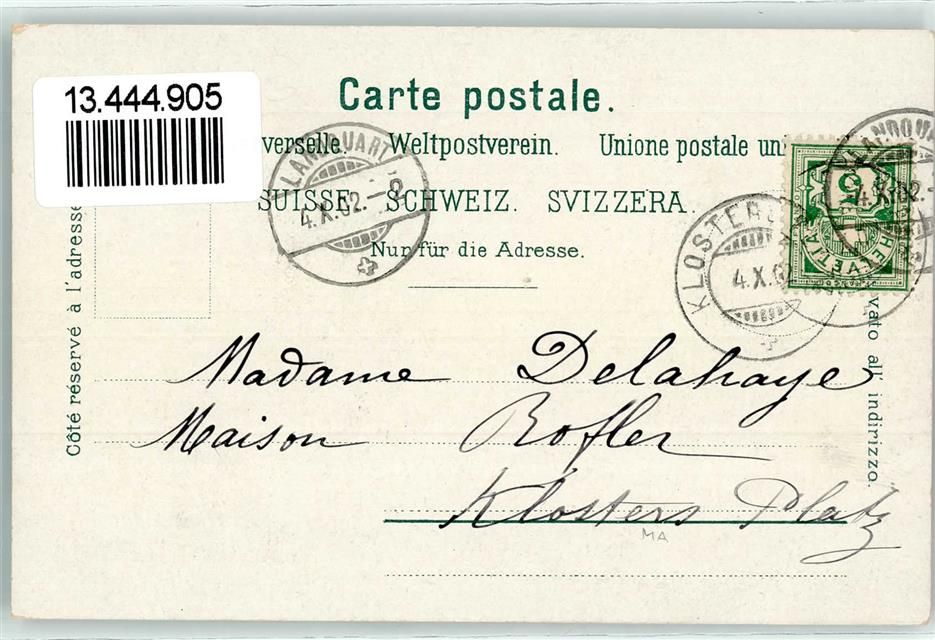 13.444.905
Carte postale.
verselle. Weltpostverein. Unione postale un
SUISSE. SCHWEIZ. SVIZZERA.
Nur für die Adresse.
LANDQUART
4.X.02.-9
KLOSTERS
4.X.0
LANDQUA
4.X.02.
5
HELVETIA
Côté réservé à l'adresse
vato all'indirizzo.
Madame Delahaye
Maison Rofler
Klosters Platz
MA